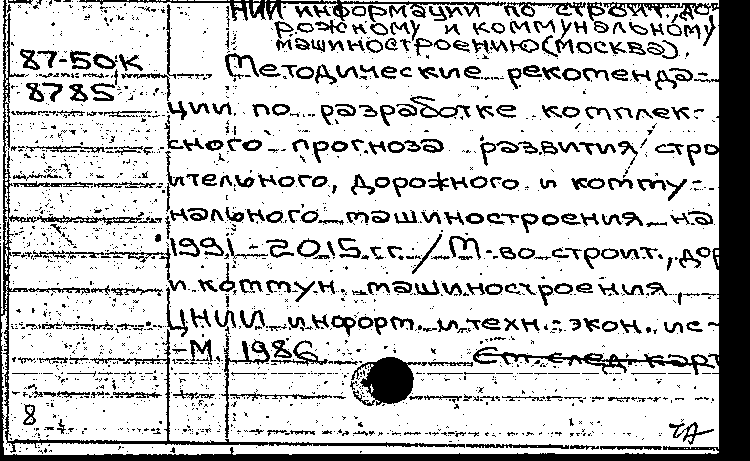 НИИ информации по строит., до
рожному и коммунальному
машиностроению (Москва).
87-50К Методические рекоменда-
8785
ции по разработке комплек-
сного прогноза развития стро
ительного, дорожного и комму-
нального машиностроения на
1991-2015 гг. / М-во строит., дор
и коммун. машиностроения,
ЦНИИ информ. и техн.-экон. ис-
-М. 1986 См след. карт
8